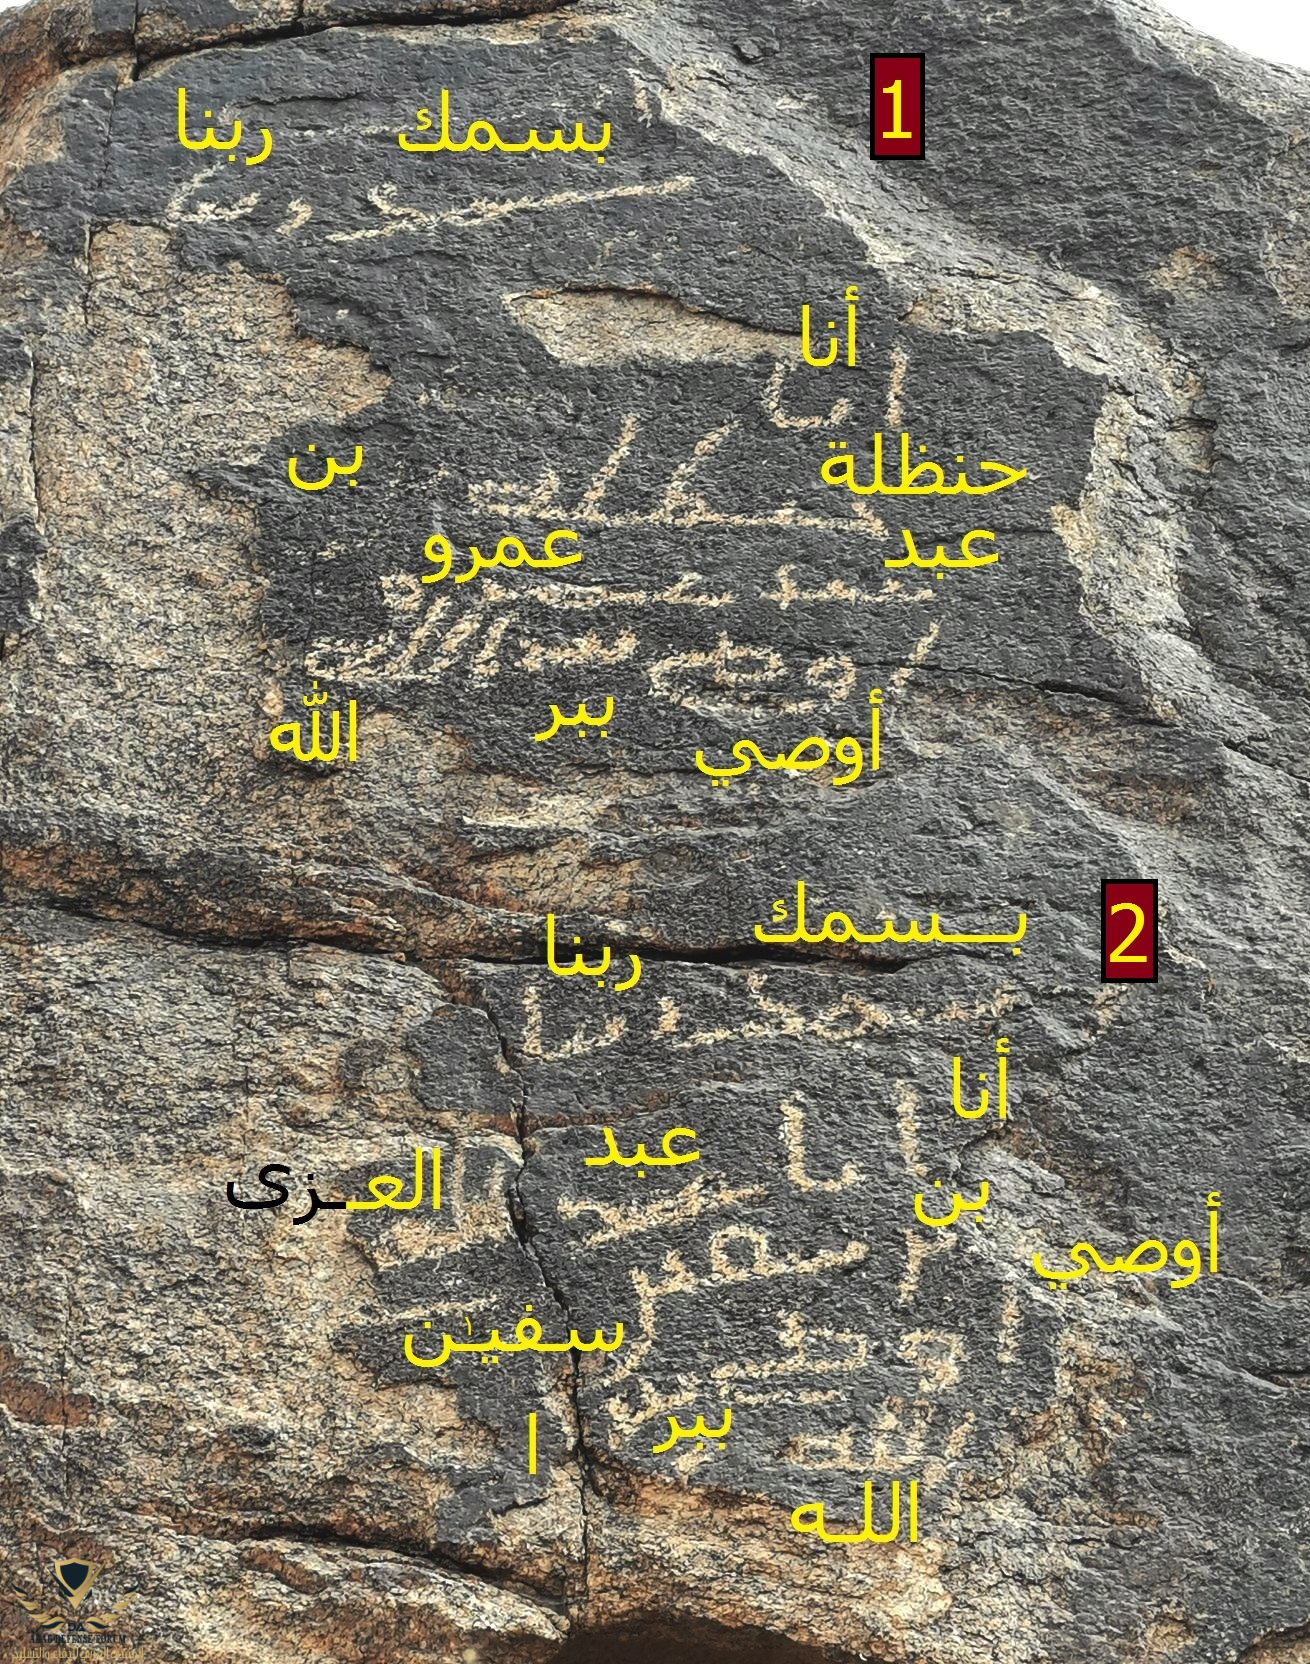 1
بسمك ربنا
أنا
حنظلة بن
عبد عمرو
أوصي ببر الله
2
بـــسمك ربنا
أنا عبد العـزى
بن سفيٰن
أوصي ببر ا
اللـه
ARAB DEFENSE FORUM